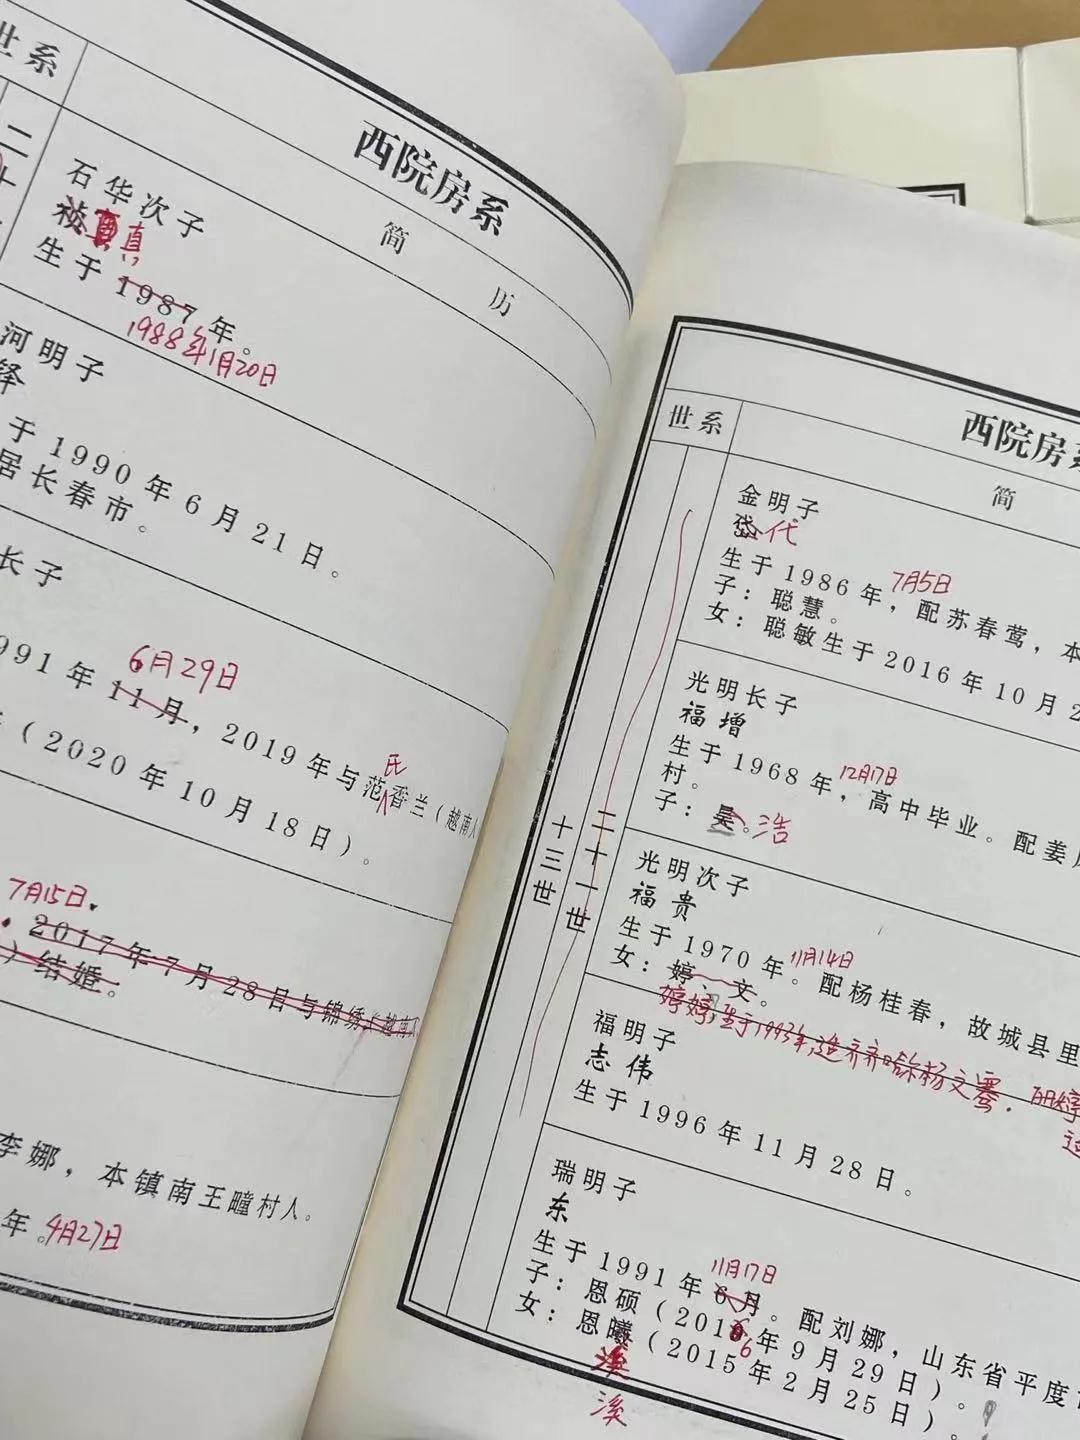 世系
西院房系
简历
二十
石华次子
祯真
生于1987年。
1988年1月20日
河明子
铎
于1990年6月21日。
居长春市。
长子
6月29日
991年11月，2019年与范氏香兰（越南人
（2020年10月18日）。
7月15日.
2017年7月28日与锦绣（越南
）结婚。
李娜，本镇南王疃村人。
年。4月27日
西院房系
世系
简
十三世
二十一世
金明子
岱代
7月5日
生于1986年，配苏春莺，本
子：聪慧。
女：聪敏生于2016年10月2
光明长子
福增
12月17日
生于1968年，高中毕业。配姜
村。
子：昊。浩
光明次子
福贵
11月14日
生于1970年。配杨桂春，故城县里
女：婷、文。
婷婷,生于1993年,适齐齐哈尔杨文骞.
福明子
志伟
生于1996年11月28日。
瑞明子
东
11月17日
生于1991年6月。配刘娜，山东省平度
子：恩硕（2016年9月29日）。
女：恩曦（2015年2月25日）。
溪
溪